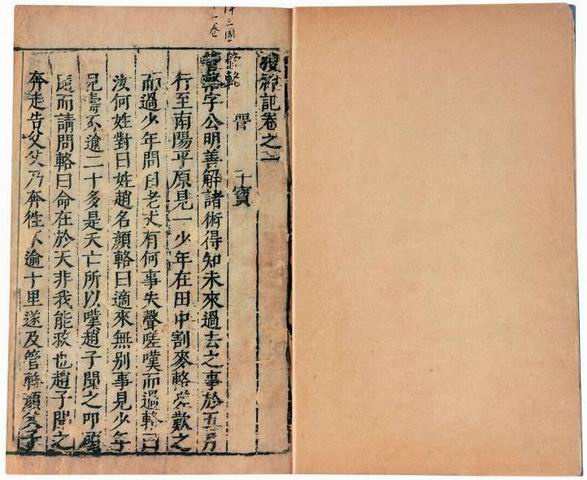 搜神記卷之一
晉 干寶
管輅字公明善解諸術得知未來過去之事於五月
行至南陽平原見一少年在田中割麥輅嗟歎之
而過少年問曰老丈有何事失聲嗟嘆而過輅曰
汝何姓對曰姓趙名顏輅曰適來無別事見少年
兒壽不逾二十多是夭亡所以嘆趙子聞之叩
而請問輅曰命在於天非我能救也趙子聞之
奔走告父父乃奔往不逾十里遂及管輅顏父子
三國
一卷